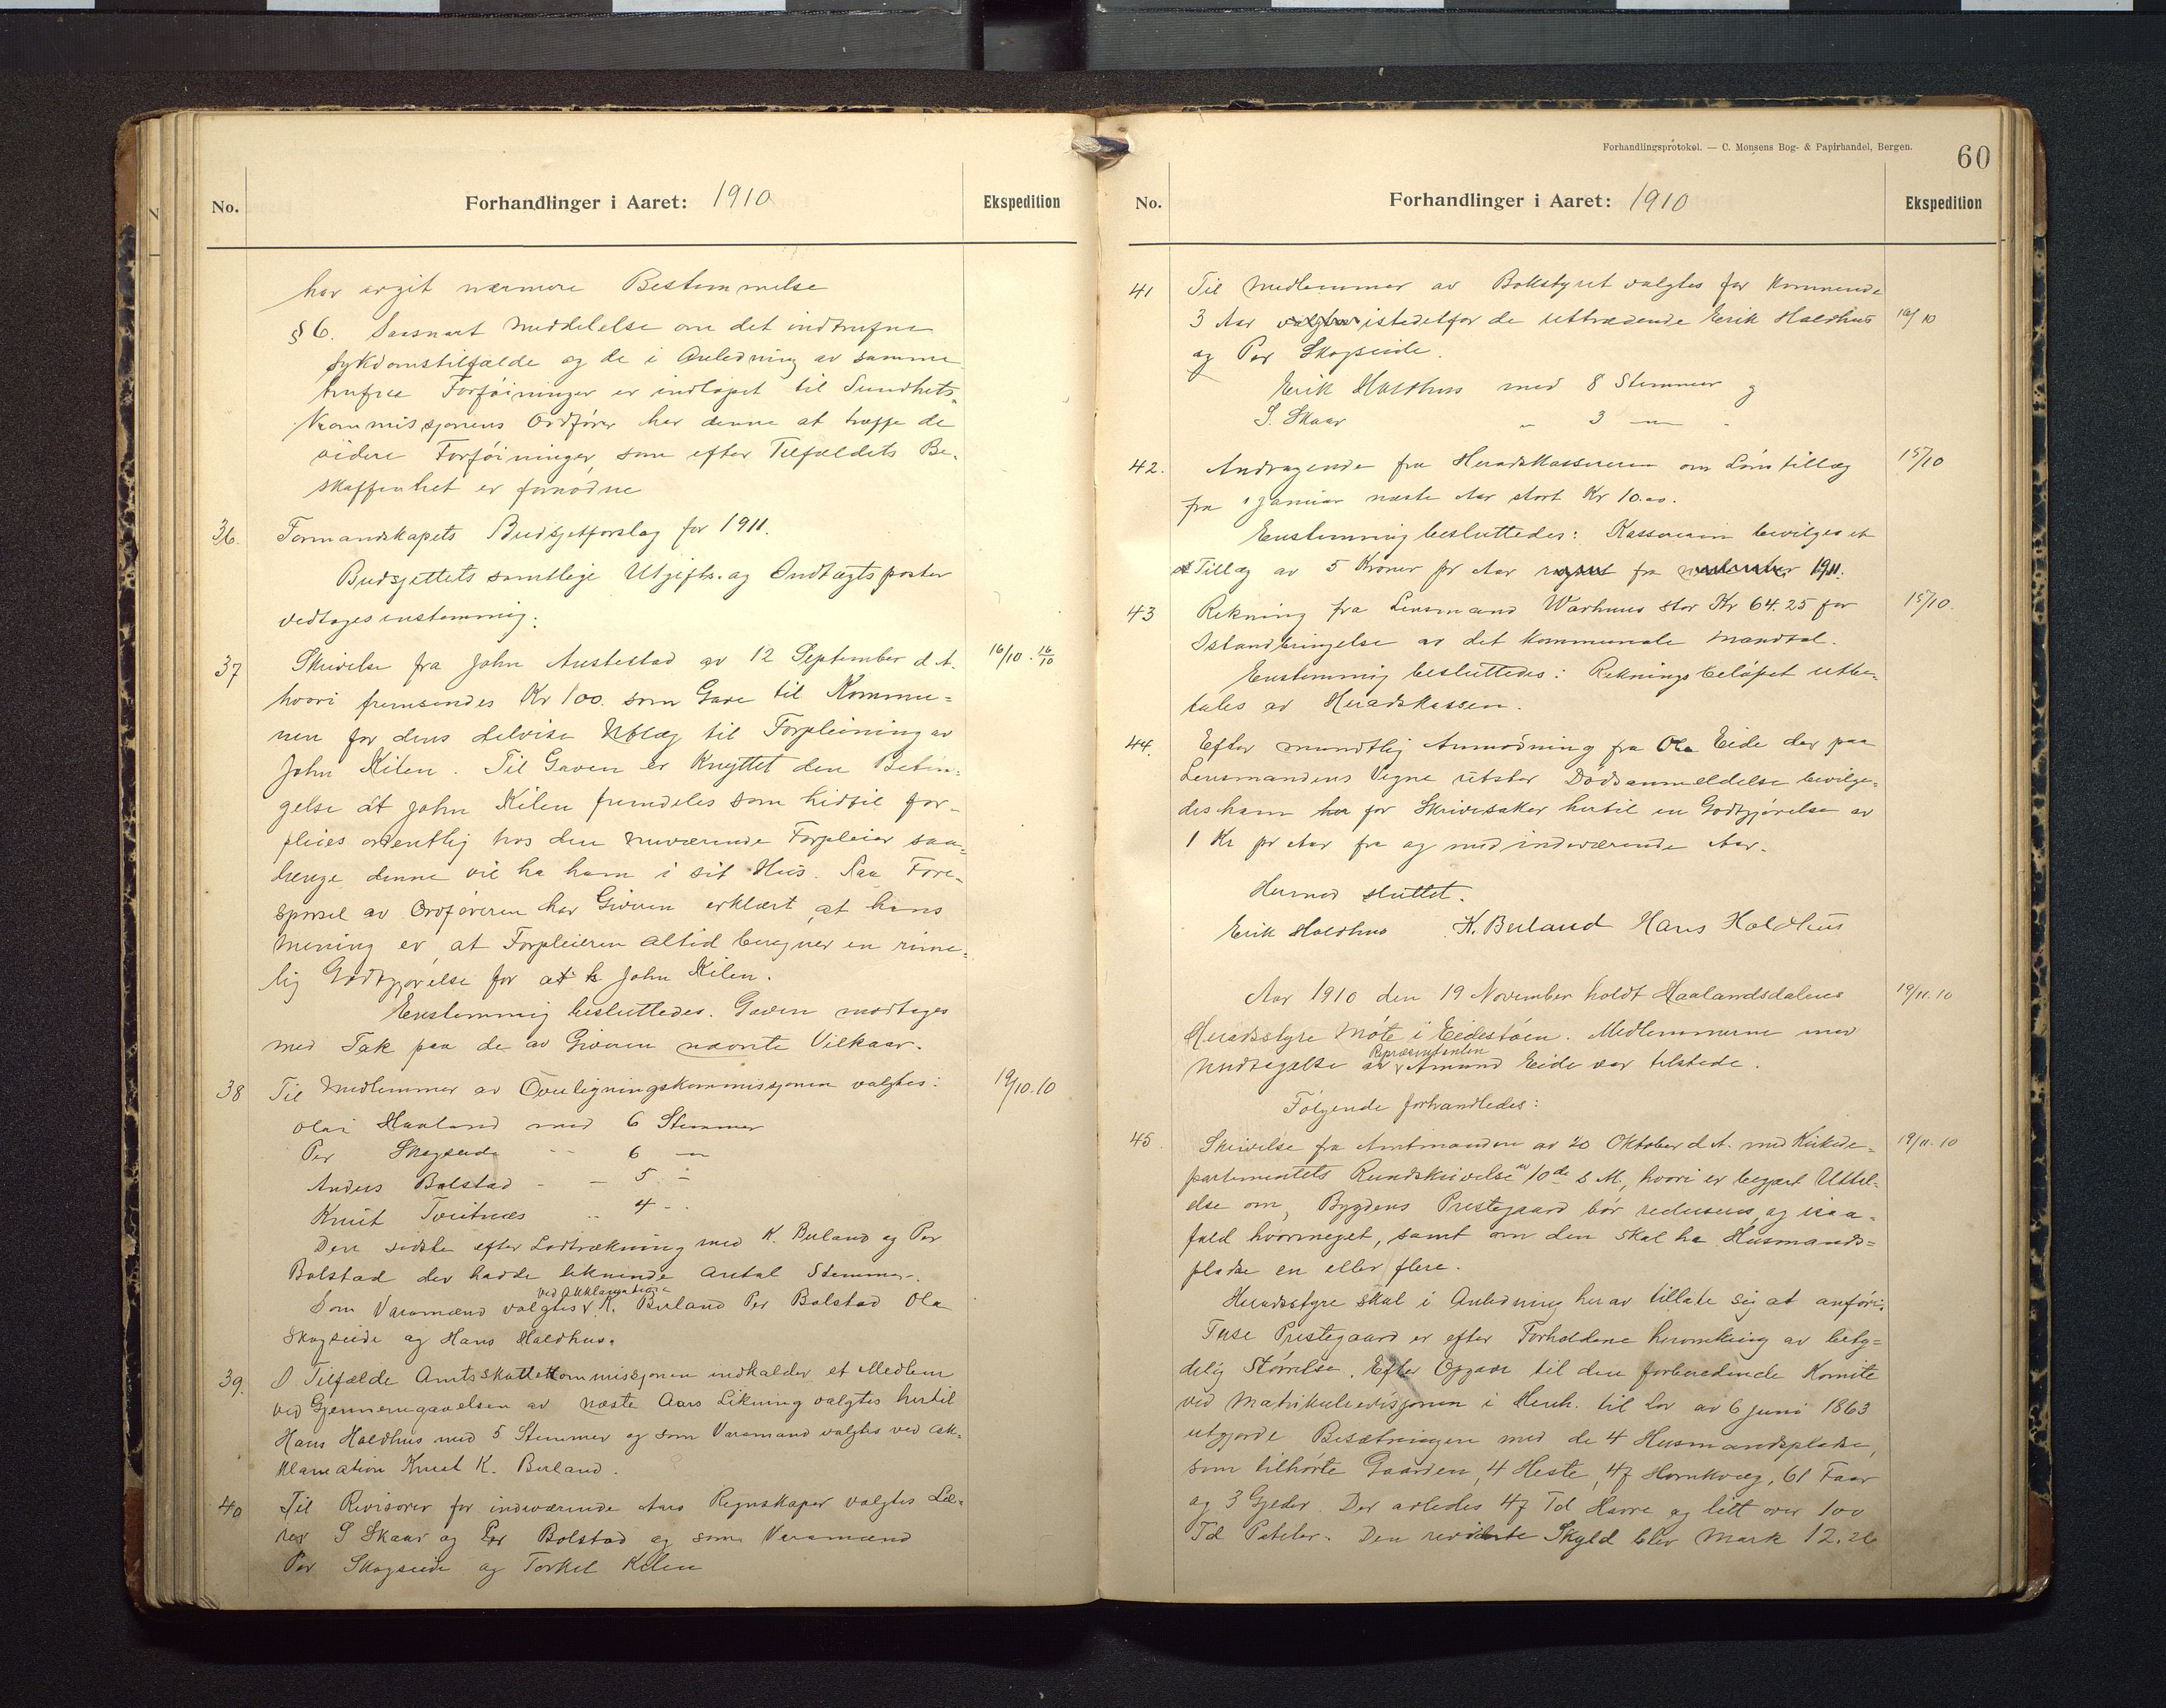 No.
Forhandlinger i Aaret: 1910
Ekspedition
har avgit nærmere Bestemmelse
§ 6. Saasnart Meddelelse om det indtrufne
Sykdomstilfælde og de i Anledning av samme
trufne Forføininger er indløpet til Sundhets-
Kommissjonens Ordfører har denne at træffe de
videre Forføininger, som efter Tilfældets Be-
skaffenhet er fornødne
36. Formandskapets Budsjetforslag for 1911.
Budsjettets samtlige Utgifts- og Indtægtsposter
vedtages enstemmig.
37 Skrivelse fra John Austestad av 12 September d. A. 16/10. 16/10
hvori fremsendes Kr 100. som Gave til Kommu-
nen for dens delvise Utlæg til Forpleining av
John Kilen. Til Gaven er knyttet den Betin-
gelse at John Kilen fremdeles som hidtil for-
pleies ordentlig hos den nuværende Forpleier saa-
længe denne vil ha ham i sit Hus. Paa Fore-
spørsel av Ordføreren har Giveren erklært at hans
Mening er, at Forpleieren altid beregner en rime-
lig Godtgjørelse for at h John Kilen.
Enstemmig besluttedes. Gaven modtages
med Tak paa de av Giveren nævnte Vilkaar.
38 Til Medlemmer av Overligningskommissjonen valgtes: 19/10.10
Olai Haaland med 6 Stemmer
Per Skogseide - - 6 —
Anders Bolstad - - 5 -
Knut Tveitnes - - 4 - -
Den sidste efter Lodtrækning med K. Berland og Per
Bolstad der hadde liknende Antal Stemmer.
ved Akklamation
Som Varamænd valgtes K. Berland Per Bolstad Ola
Skogseide og Hans Holdhus.
39. I Tilfælde Amtsskattekommissjonen indkalder et Medlem
ved Gjennemgaaelsen av næste Aars Likning valgtes hertil
Hans Holdhus med 5 Stemmer og som Varamand valgtes ved Ak-
klamation Knut K. Berland.
40 Til Revisorer for indeværende Aars Regnskaper valgtes Læ-
rer S Skaar og Per Bolstad og som Varamænd
Per Skogseide og Torkel Kilen
Forhandlingsprotokol. — C. Monsens Bog- & Papirhandel, Bergen.
60
No.
Forhandlinger i Aaret: 1910
Ekspedition
41 Til Medlemmer av Bokstyret valgtes for kommende
3 Aar valgtes istedetfor de uttrædende Erik Holdhus 16/10
og Per Skogseide.
Erik Holdhus med 8 Stemmer og
S. Skaar „ 3 — .
42. Andragende fra Heradskassereren om Lønstillæg 15/10
fra 1 Januar næste Aar stort Kr 10.00.
Enstemmig besluttedes: Kassereren bevilges et
Tillæg av 5 Kroner pr Aar fra 1911.
43 Rekning fra Lensmand Warhuus stor Kr 64.25 for 15/10.
Istandbringelse av det kommunale Mandtal.
Enstemmig besluttedes: Rekningsbeløpet utbe-
tales av Heradskassen.
44. Efter mundtlig Anmodning fra Ola Eide der paa
Lensmandens Vegne utsteder Dødsanmeldelse bevilge-
des ham her for Skrivesaker hertil en Godtgjørelse av
1 Kr pr Aar fra og med indeværende Aar.
Hermed sluttet.
Erik Holdhus K. Berland Hans Holdhus
Aar 1910 den 19 November holdt Haalandsdalens 19/11.10
Heradsstyre Møte i Eidestøen. Medlemmerne med
Repræsentanten
Undtagelse av Amund Eide var tilstede.
Følgende forhandledes:
45 Skrivelse fra Amtmanden av 20 Oktober d. A. med Kirkede- 19/11.10
partementets Rundskrivelse av 10de s. M., hvori er begjært Uttal-
else om, Bygdens Prestegaard bør reduseres og isaa-
fald hvormeget, samt om den skal ha Husmands-
pladse en eller flere.
Heradsstyre skal i Anledning herav tillate sig at anføre:
Fuse Prestegaard er efter Forholdene heromkring av bety-
delig Størrelse. Efter Opgave til den forberedende Komite
ved Matrikulrevisjonen i Henh. til Lov av 6 Juni 1863
utgjorde Besætningen med de 4 Husmandspladse,
som tilhørte Gaarden, 4 Heste, 47 Hornkvæg, 61 Faar
og 3 Gjeder. Der avledes 47 Td Havre og litt over 100
Td Poteter. Den reviderte Skyld blev Mark 12.26